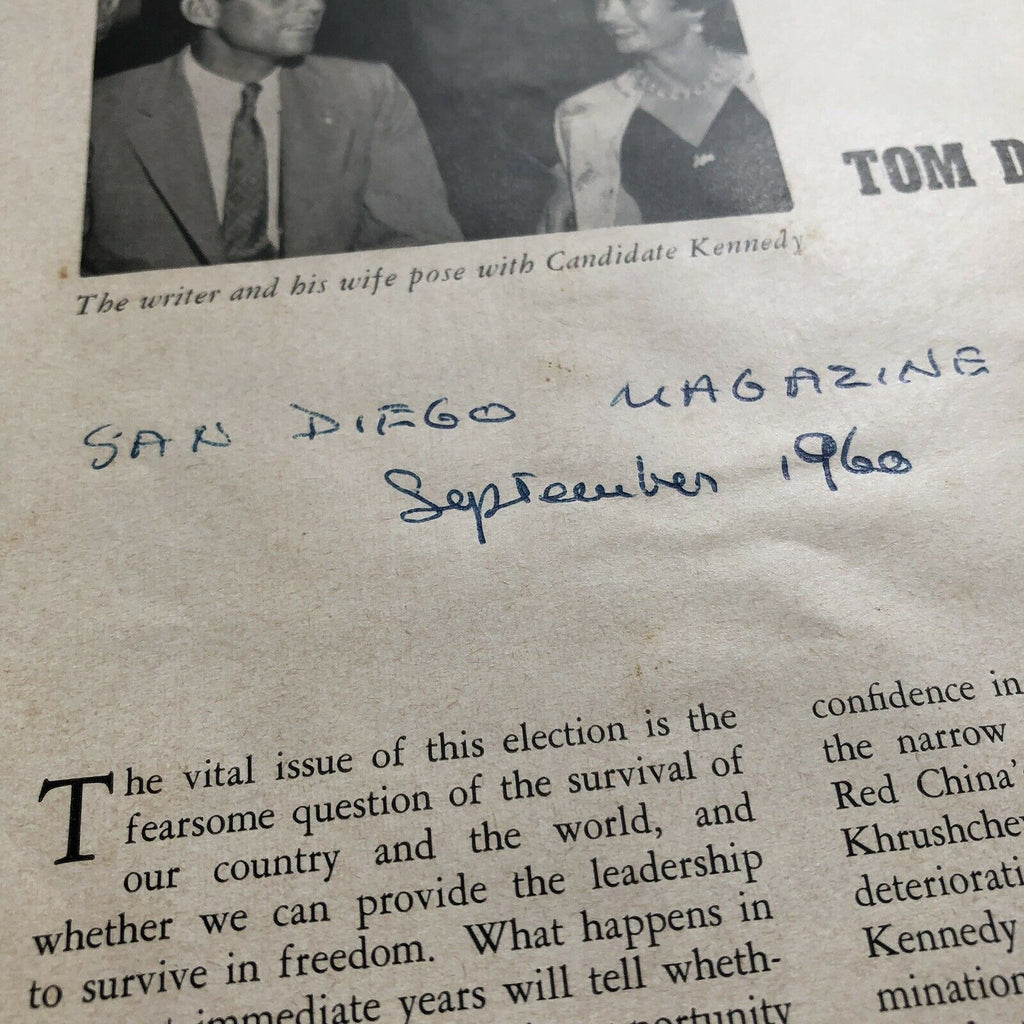 TOM
The writer and his wife pose with Candidate Kennedy
SAN DIEGO MAGAZINE
September 1960
The vital issue of this election is the
fearsome question of the survival of
our country and the world, and
whether we can provide the leadership
to survive in freedom. What happens in
immediate years will tell wheth-
confidence in
the narrow
Red China'
Khrushche
deteriorati
Kennedy
mination